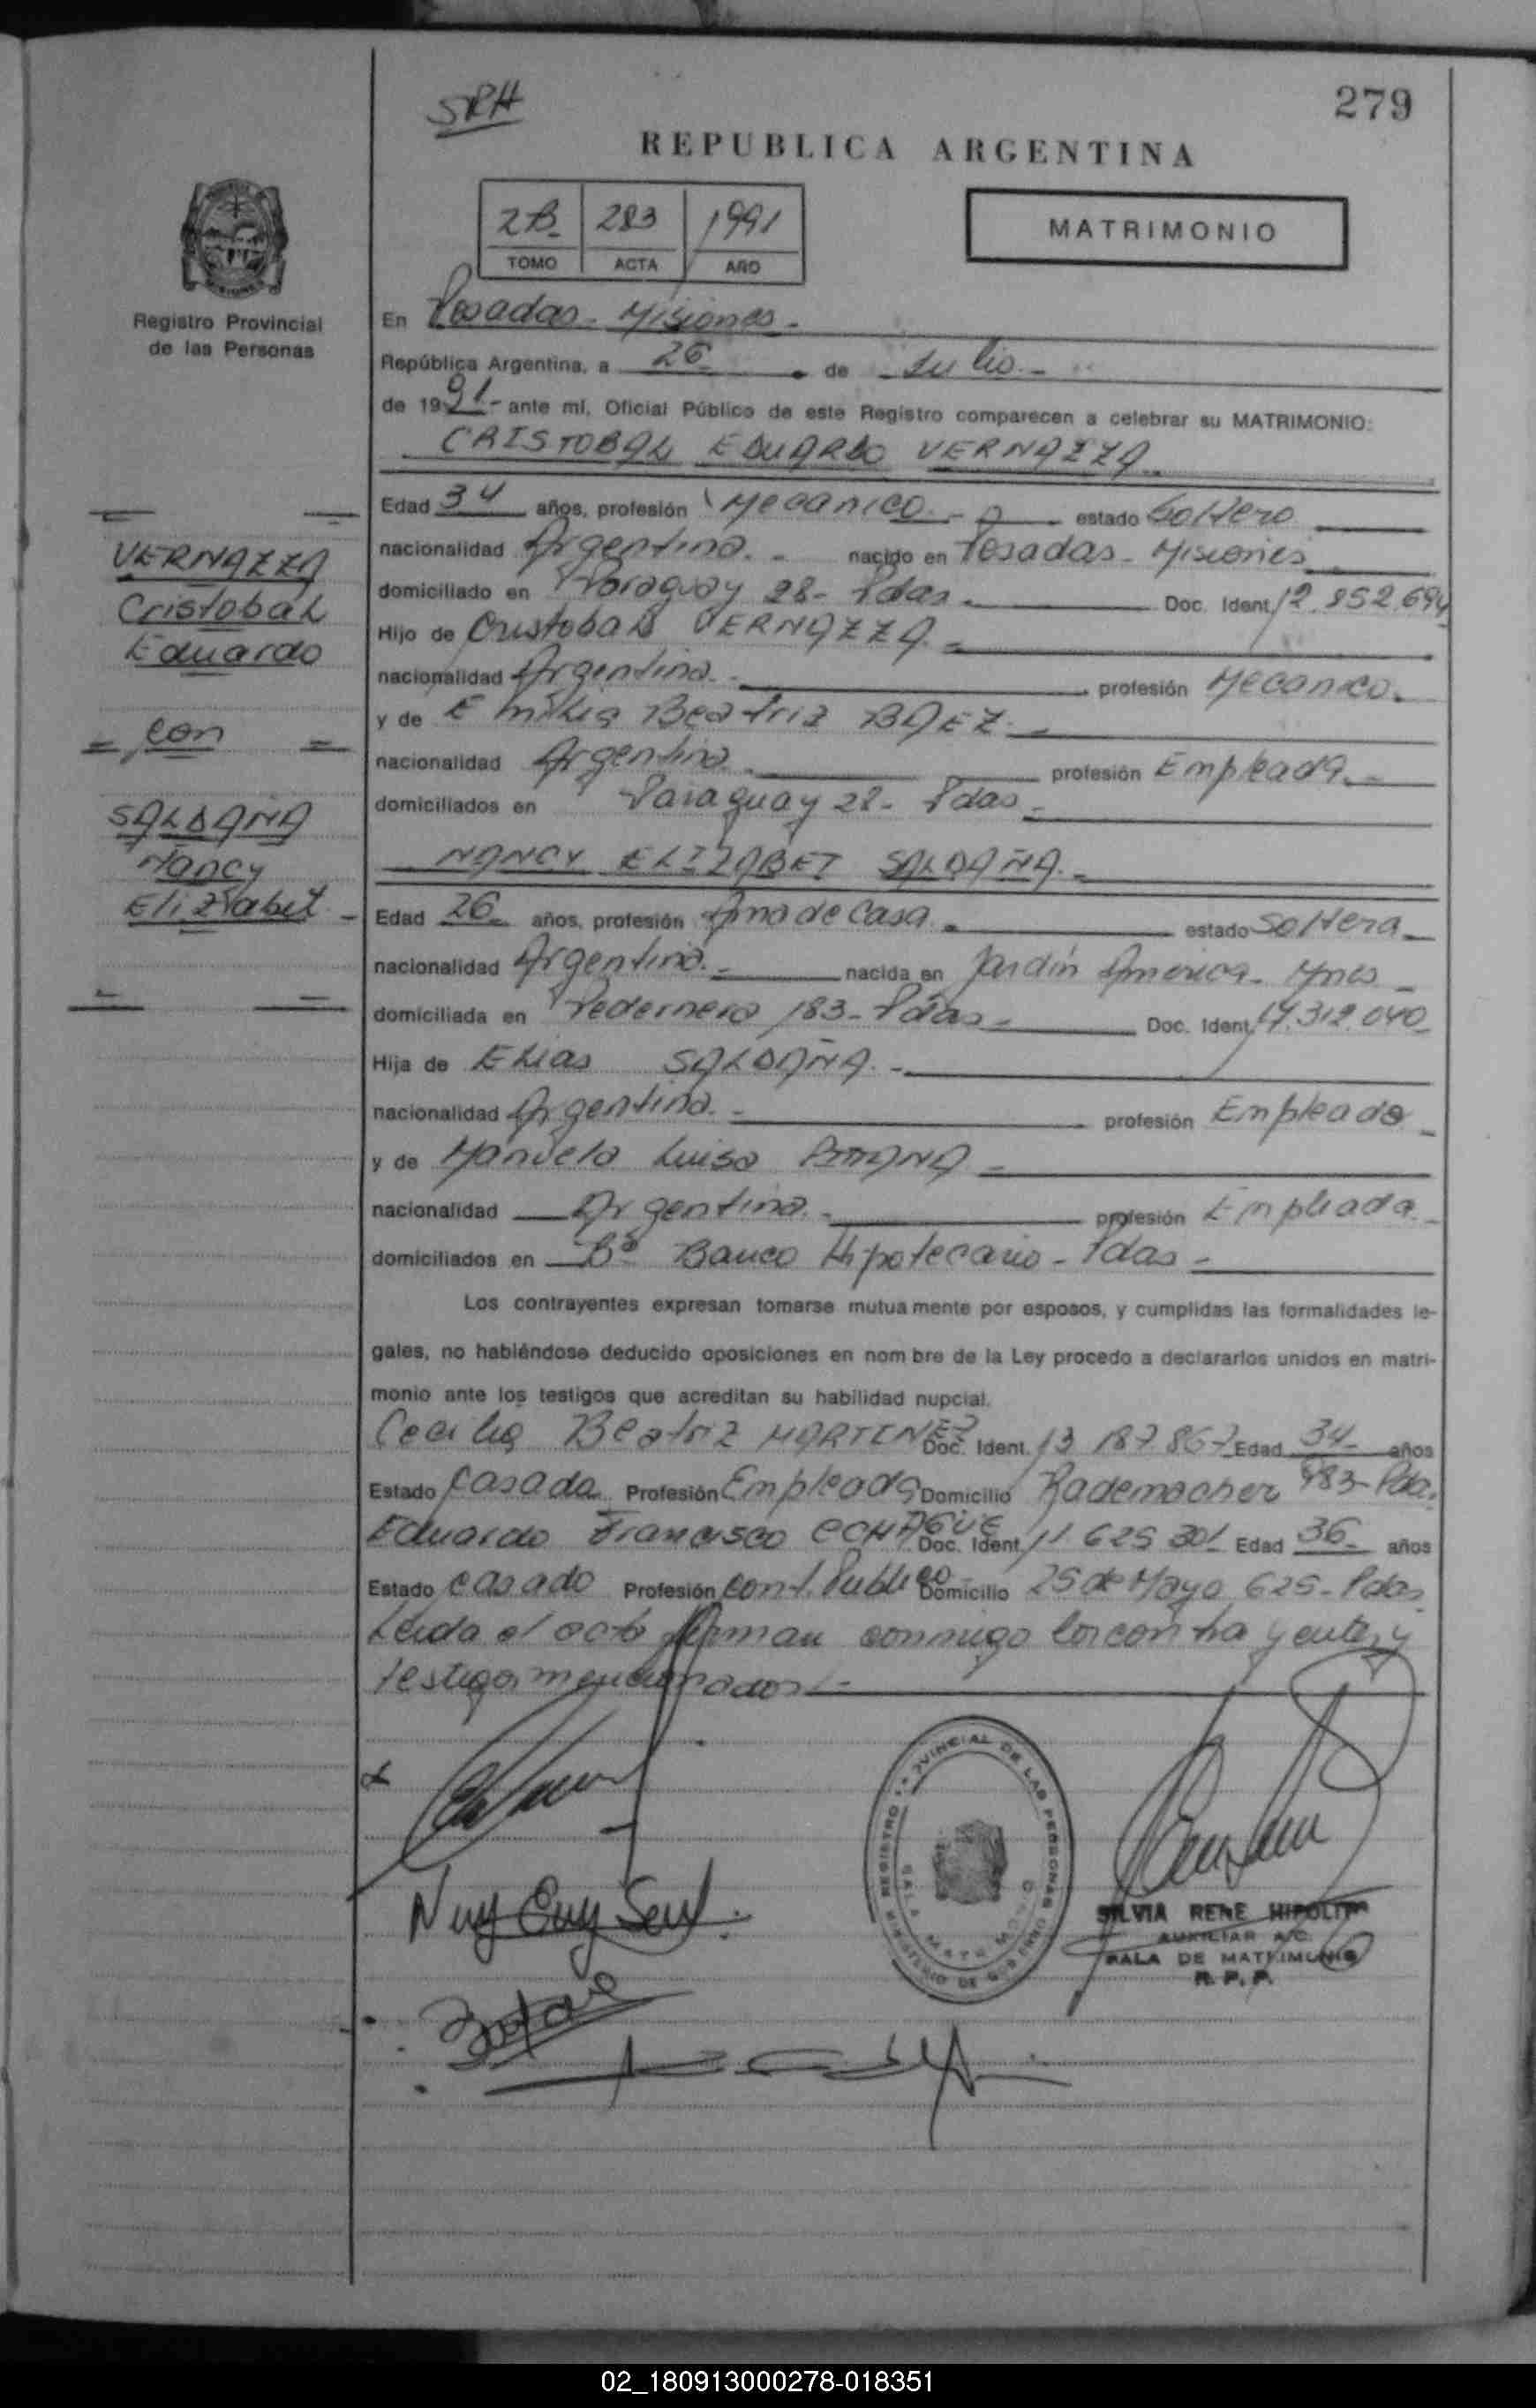 279
SRH
REPUBLICA ARGENTINA
2B- 283 1991
TOMO ACTA AÑO
MATRIMONIO
Registro Provincial
de las Personas
En Posadas - Misiones -
República Argentina, a 26 de Julio. -
de 1991- ante mí, Oficial Público de este Registro comparecen a celebrar su MATRIMONIO:
CRISTOBAL EDUARDO VERNAZZA
Edad 34 años, profesión Mecanico. - estado Soltero
nacionalidad Argentina. - nacido en Posadas - Misiones
domiciliado en Paraguay 28- Pdas. Doc. Ident. 12.852.694
Hijo de Cristobal VERNAZZA. -
nacionalidad Argentina. profesión Mecanico.
y de Emilia Beatriz BAEZ. -
nacionalidad Argentina. profesión Empleada. -
domiciliados en Paraguay 28- Pdas -
NANCY ELIZABET SALDAÑA. -
Edad 26 años, profesión Ama de Casa. estado Soltera -
nacionalidad Argentina. - nacida en Jardín America - Mnes -
domiciliada en Pedernera 183- Pdas - Doc. Ident. 17.312.040
Hija de Elias SALDAÑA. -
nacionalidad Argentina. - profesión Empleado -
y de Manuela Luisa -
nacionalidad Argentina. - profesión Empleada -
domiciliados en Bº Banco Hipotecario - Pdas -
Los contrayentes expresan tomarse mutuamente por esposos, y cumplidas las formalidades le-
gales, no habiéndose deducido oposiciones en nombre de la Ley procedo a declararlos unidos en matri-
monio ante los testigos que acreditan su habilidad nupcial.
Cecilia Beatriz MARTINEZ Doc. Ident. 13 187.867 Edad 34 años
Estado Casada Profesión Empleada Domicilio Rademacher 983- Pdas.
Eduardo Francisco ECHAGUE Doc. Ident. 11.625 301 Edad 36 años
Estado casado Profesión Cont. Publico Domicilio 25 de Mayo 625- Pdas
Leida el acta firman conmigo los contrayentes y
testigos mencionados. -
VERNAZZA
Cristobal
Eduardo
= con =
SALDAÑA
Nancy
Elizabet -
REGISTRO PROVINCIAL DE LAS PERSONAS
MINISTERIO DE GOBIERNO
SALA MATRIMONIO
SILVIA RENE HIPOLITO
AUXILIAR A/C.
SALA DE MATRIMONIO
R. P. P.
02_180913000278-018351